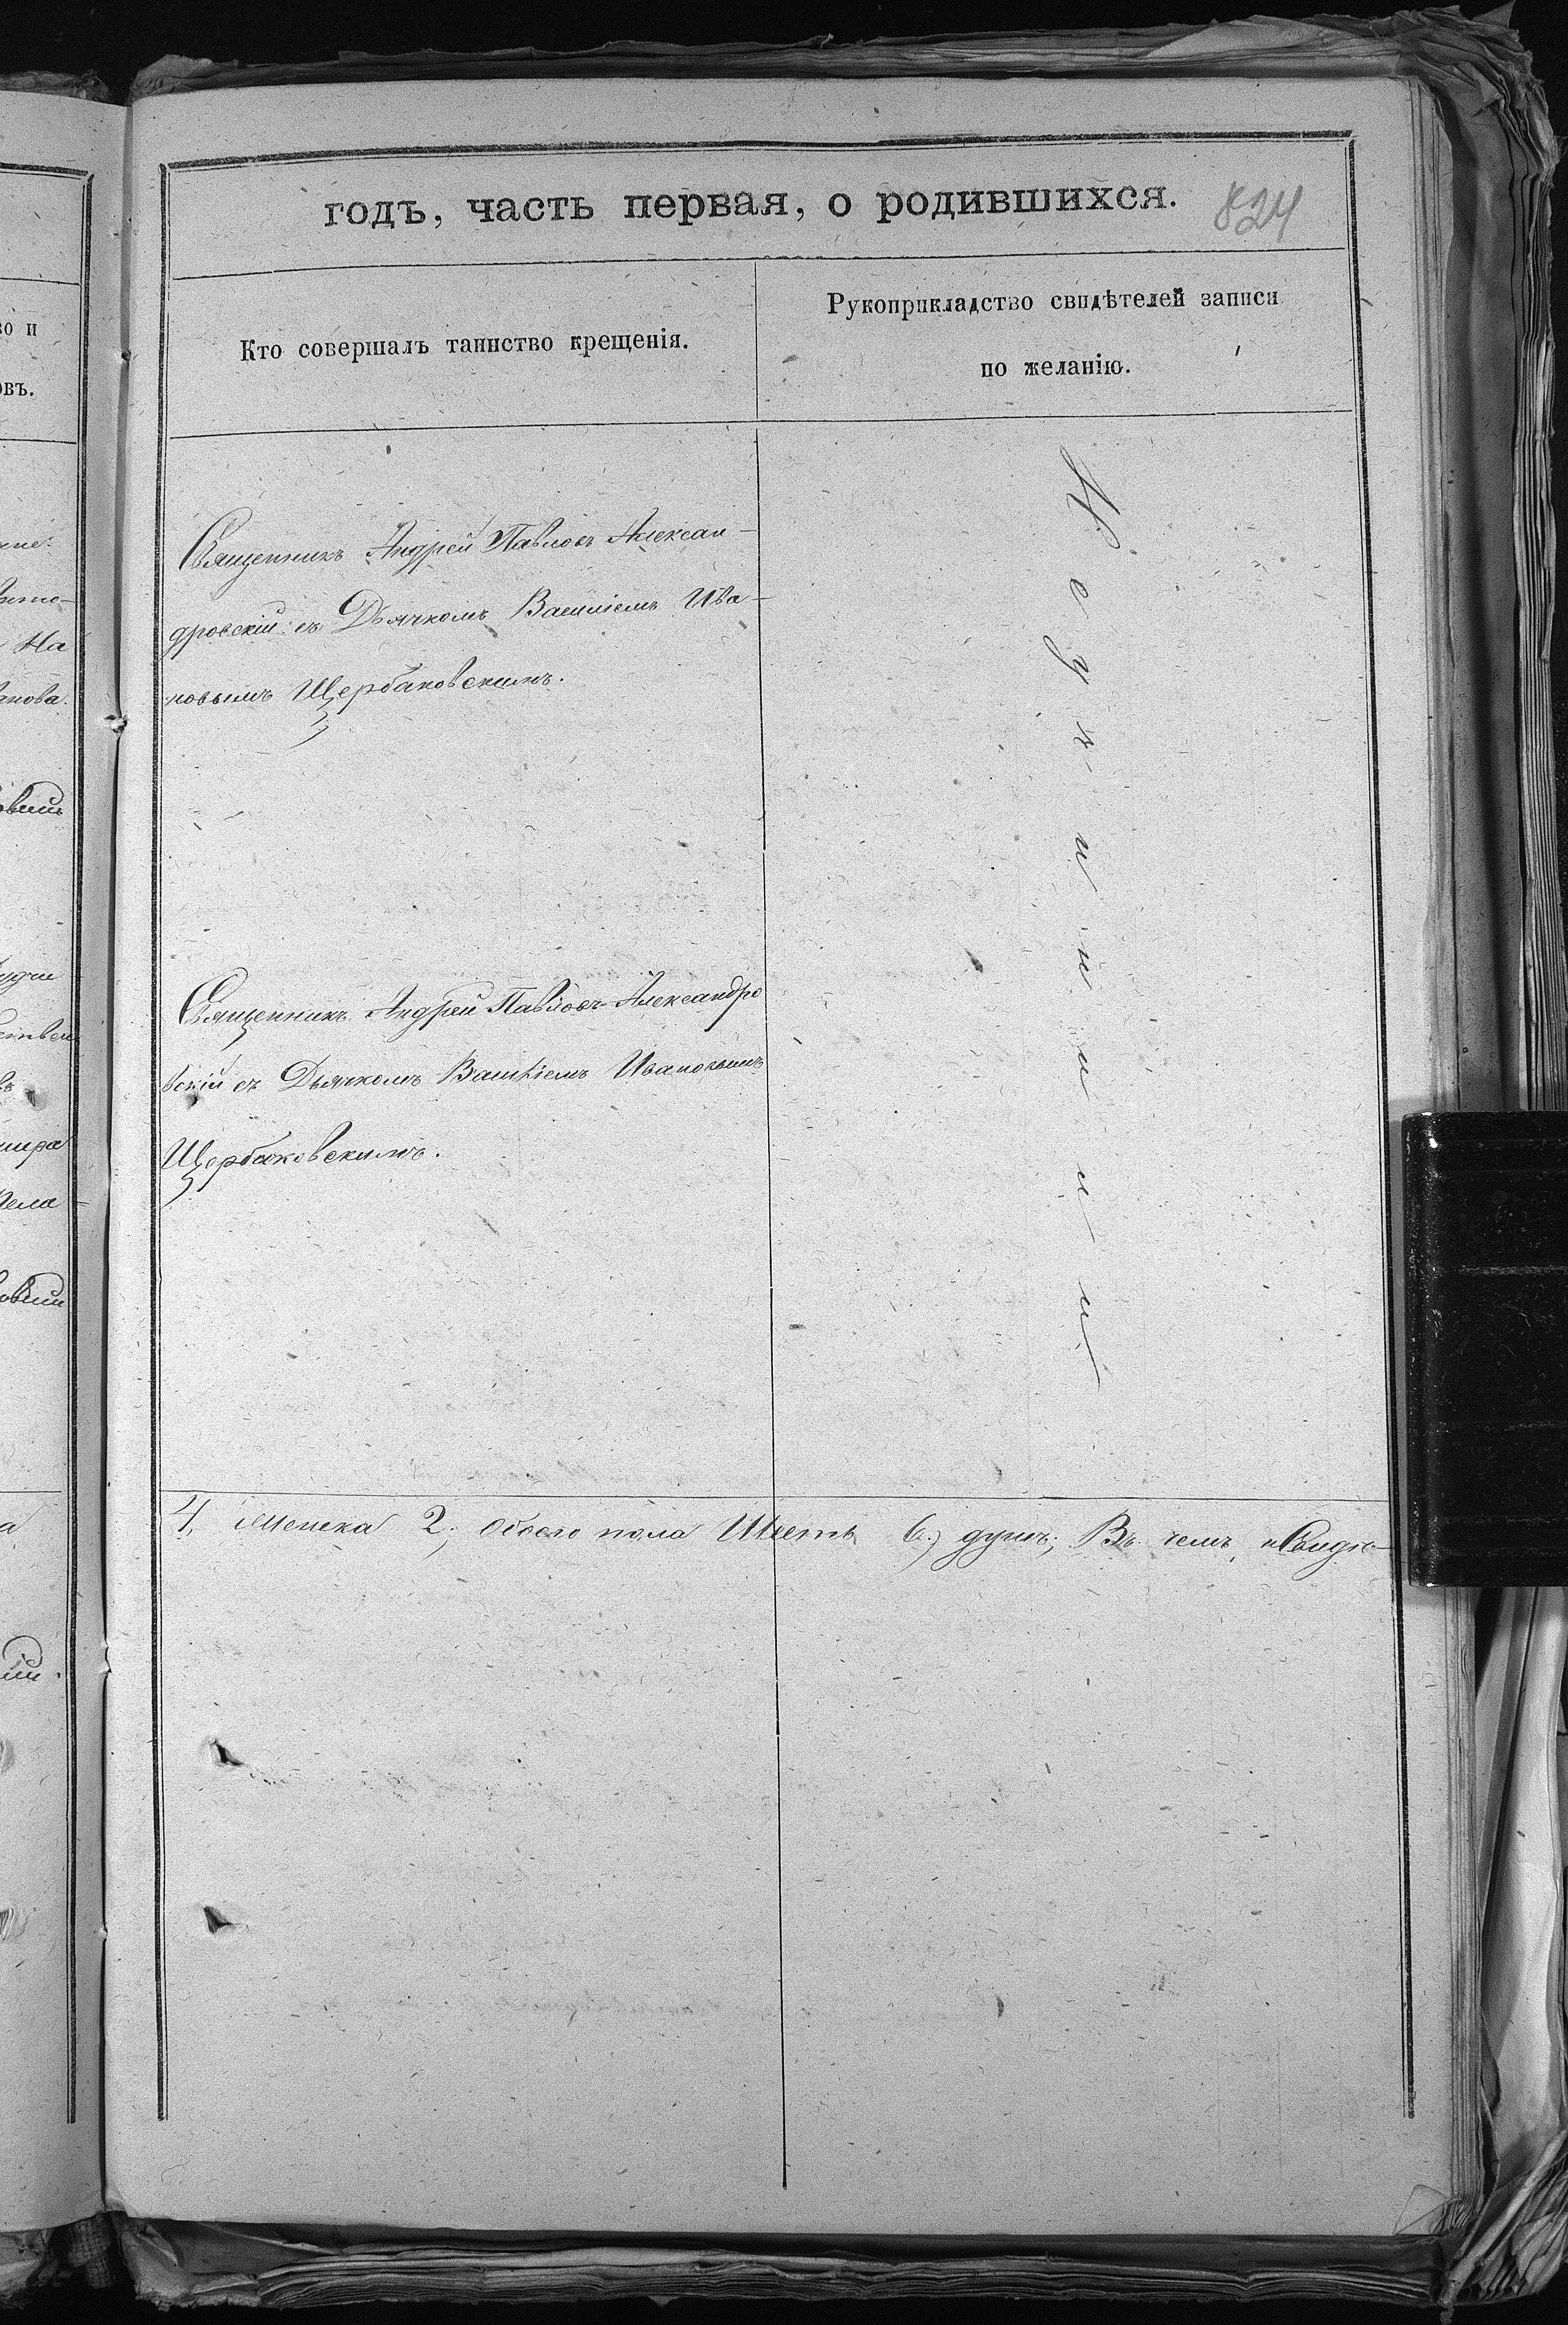 годъ, часть первая, о родившихся. 824
Кто совершалъ таинство крещенія.
Рукоприкладство свидѣтелей записи
по желанію.
Священникъ Андрей Павловъ Алексан-
дровскій съ Дьячкомъ Василіемъ Ива-
новымъ Щербаковскимъ.
Священникъ Андрей Павловъ Александро
вскій съ Дьячкомъ Василіемъ Ивановымъ
Щербаковскимъ.
4, женска 2; обоего пола Шесть 6.) душъ; Въ чемъ и Свидѣ-
во и
овъ.
На